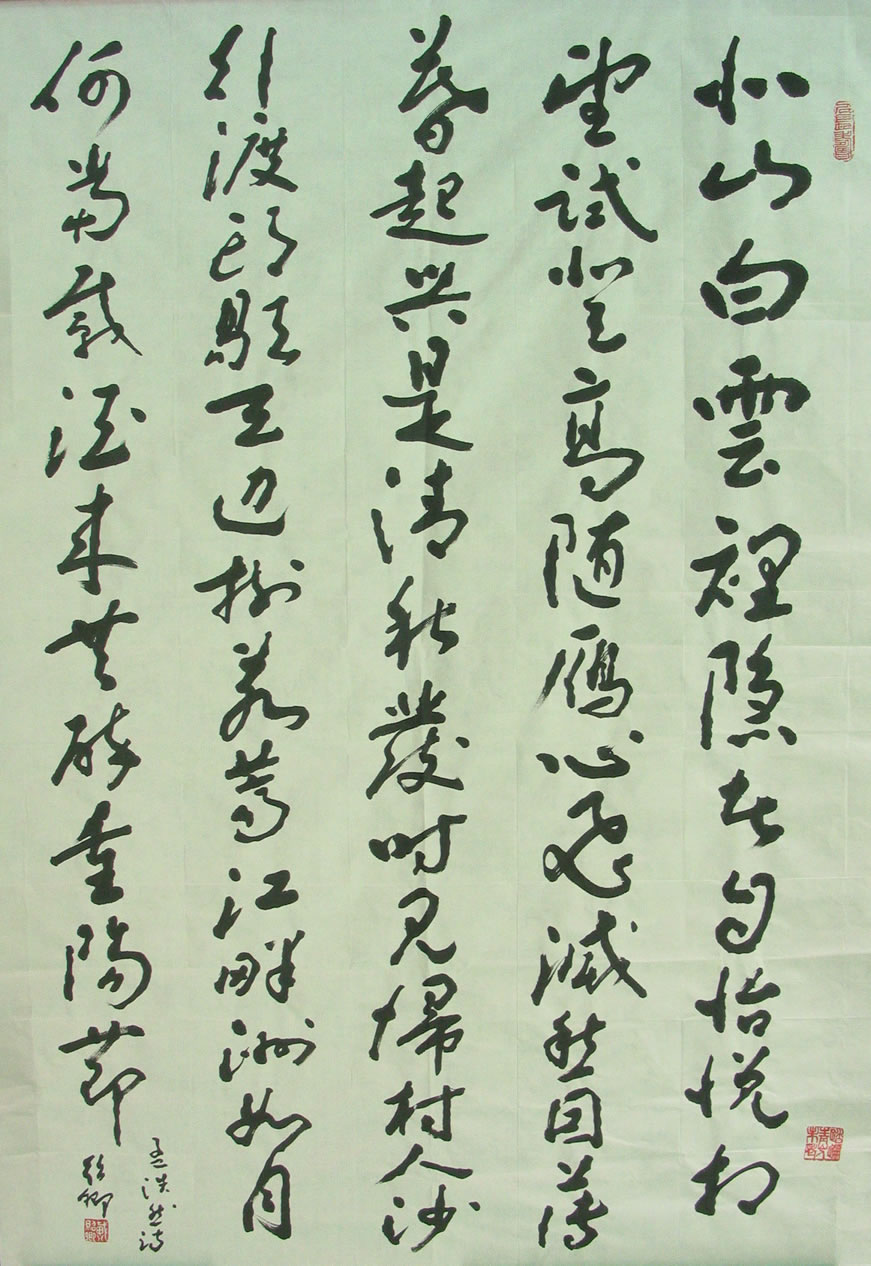 北山白雲裡隱者自怡悅相
望試登高隨雁心飛滅愁因薄
暮起興是清秋發時見歸村人沙
行渡頭歇天边樹若薺江畔洲如月
何當載酒來共醉重陽節
孟浩然詩